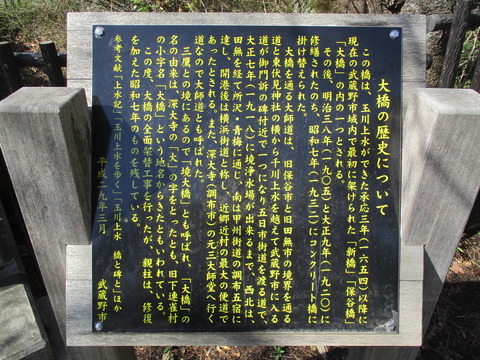 大橋の歴史について
この橋は、玉川上水ができた承応三年（一六五四）以降に
現在の武蔵野市域内で最初に架けられた「新橋」「保谷橋」
「大橋」の内の一つとされる。
その後、明治三八年（一九〇五）と大正九年（一九二〇）に
修繕されたのち、昭和七年（一九三二）にコンクリート橋に
掛け替えられた。
大橋を通る大師道は、旧保谷市と旧田無市の境界を通る
道と東伏見神社の横から千川上水を越えて武蔵野市に入る
道が御門訴の碑付近で一つになり五日市街道を渡る道で、
大正七年（一九一八）に境浄水場が出来るまで、西北は、
田無を経て所沢・青梅に通じ、南は甲州街道の調布五宿に
達し、開港後は横浜街道と称し、近郷近村の最大の便道で
あったとされる。また、深大寺（調布市）の元三大師堂へ行く
道なので大師道とも呼ばれた。
三鷹との境にあるので「境大橋」とも呼ばれ、「大橋」の
名の由来は、深大寺の「大」の字をとったとも、旧下連雀村
の小字名「大橋」という地名からきたともいわれている。
この度、大橋の全面架替工事を行ったが、親柱は、修復
を加えた昭和七年のものを残している。
参考文献「上水記」「玉川上水を歩く」「玉川上水　橋と碑と」ほか
平成二九年三月　武蔵野市